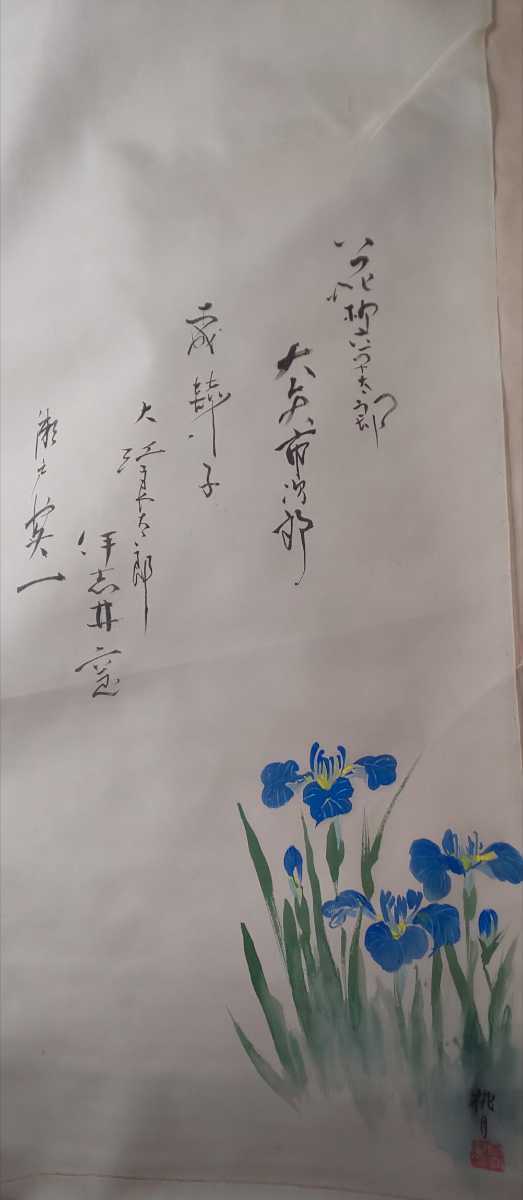 花柳章太郎
大矢市次郎
子
大江良太郎
伊志井寛
瀬戸英一
桃月